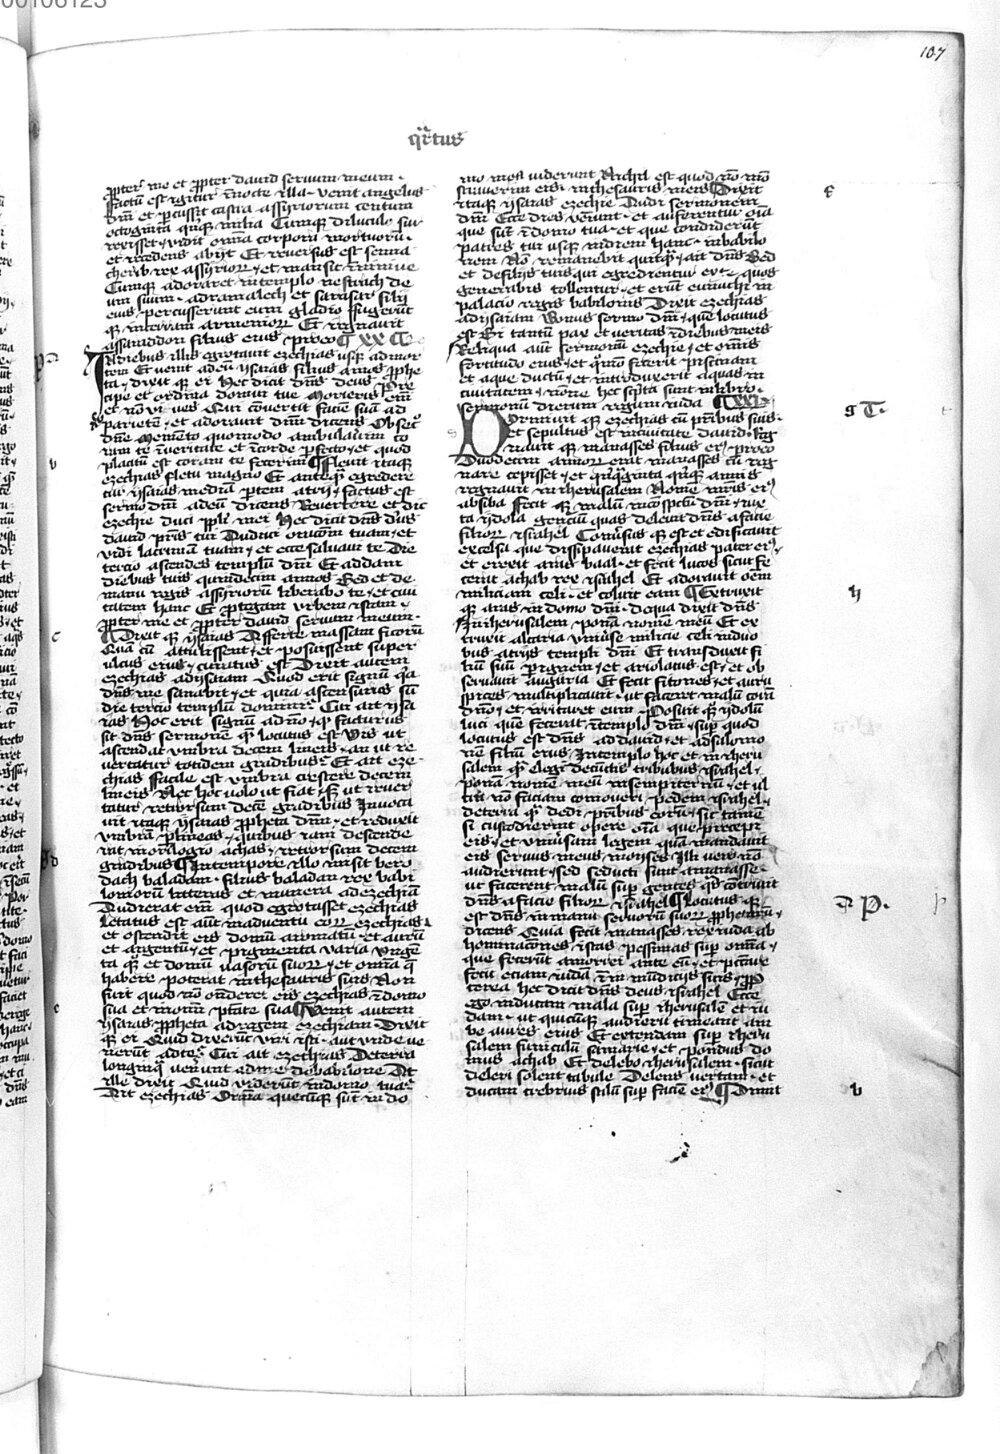 00106123
107
qʳtus
ꝓpter me et ꝓpter dauid seruum meum ·
Factū est igitur ī nocte illa · venit angelus
dnī et ꝑcussit castra assyriorum centum
octoginta qinqꝫ milia Cumqꝫ diluculo sur
rexisset · vidit omnia corpora mortuorū ·
et recedens abijt Et reuersus est senna
cherib rex assyrioꝝ · et mansit in niniue
Cumqꝫ adoraret in templo nesrach de
um suum · adramalech et sarasar filij
eius · percusserunt eum gladio fugerūt
qꝫ in terram armenioꝝ Et regnauit
assaraddon filius eius ꝓ eo ¶ XX C
In diebus illis egrotauit ezechias usqꝫ ad mor
tem Et venit ad eū ysaias filius amos ꝓphe
ta · dixit qꝫ ei Hec dicit dn̄s deus Pre
cipe et ordina domui tue Morieris em̄
et nō vi ues Qui cōuertit faciē suā ad
parietē · et adorauit dn̄m dicens Obsec
dn̄e Memēto quomodo ambulauim co
ram te ī veritate et ī corde ꝑfecto · et quod
placitū est coram te fecerim ¶ Fleuit itaqꝫ
ezechias fletu magno Et anteqꝫ egredere
tur ysaias mediā ꝑtem atrij · factus est
sermo dn̄i ad eū dicens Reuertere et dic
ezechie duci ppl̄i mei Hec dicit dn̄s deus
dauid pr̄is tui Audiui or̄onem tuam · et
vidi lacrimā tuam · et ecce sanaui te Die
tercio ascendes templū dn̄i Et addam
diebus tuis quindecim annos Sed et de
manu regis assyriorū liberabo te · et ciui
tatem hanc Et ꝓtegam vrbem istam ·
ꝓpter me et ꝓpter dauid seruum meum ·
¶ Dixit qꝫ ysaias Afferte massam ficorū
Quā cū attulissent · et posuissent super
ulcus eius · curatus est Dixit autem
ezechias ad ysaiam Quod erit signū qa
dn̄s me sanabit · et quia ascensurus sū
die tercio templū domini Cui ait ysa
ias Hoc erit signū a dn̄o · qꝫ facturus
sit dn̄s sermonē quē locutus est Vis ut
ascendat vmbra decem lineis · an ut re
uertatur totidem gradibus Et ait eze
chias Facile est vmbrā crescere decem
lineis Nec hoc volo ut fiat · sꝫ ut reuer
tatur retrorsum decē gradibus Inuoca
uit itaqꝫ ysaias ꝓpheta dn̄m · et reduxit
vmbrā ꝑ lineas · quibus iam descende
rat in orologio achas · retrorsum decem
gradibus ¶ In tempore illo misit bero
dach baladam · filius baladan rex babi
loniorū litteras et munera ad ezechiā
Audierat em̄ quod egrotasset ezechias
Letatus est aūt in aduentu eoꝝ ezechias ·
et ostendit eis domū aromatū · et aurū
et argentū · et pigmenta varia vnguē
ta qꝫ et domū vasorū suoꝝ · et omnia q̄
habere poterat in thesauris suis Non
fuit quod nō ōnderet eis ezechias ī domo
sua et in omni ptāte sua ¶ Venit autem
ysaias ꝓpheta ad regem ezechiam Dixit
qꝫ ei Quid dixerūt viri isti · aut vnde ve
nerūt ad te · Cui ait ezechias De terra
longinqua venerunt ad me · de babilone At
ille dixit Quid viderūt in domo tua ·
Ait ezechias Omnia quecūqꝫ sūt in do
mo mea viderunt Nichil est quod nō mō
strauerim eis · in thesauris meis ¶ Dixit
itaqꝫ ysaias ezechie Audi sermonem
dn̄i Ecce dies veniunt · et auferentur oīa
que sūt ī domo tua · et que condiderūt
patres tui usqꝫ in diem hanc · in babilo
nem Nō remanebit quitqꝫ · ait dn̄s Sed
et de filijs tuis qui egredientur ex te · quos
generabis tollentur · et erūt eunuchi in
palacio regis babilonis Dixit ezechias
ad ysaiam Bonus sermo dn̄i · quē locutus
est Sit tantū pax et veritas ī diebus meis
Reliqua aūt sermonū ezechie · et omnis
fortitudo eius · et quō fecerit piscinam
et aque ductū · et introduxerit aquas in
ciuitatem · nōne hec scripta sunt in libro ·
sermonū dierum regum iuda ¶ XXI
Dormiuit qꝫ ezechias cū pr̄ibus suis ·
et sepultus est in ciuitate dauid · Reg
nauit qꝫ manasses filius eꝰ · pro eo
Duodecim annoꝝ erat manasses cū reg
nare cepisset · et qinqꝫginta qinqꝫ annis
regnauit in iherusalem Nomē mr̄is eiꝰ
absiba Fecit qꝫ malū in cōspectu dn̄i · iux
ta ydola gencium quas deleuit dn̄s a facie
filioꝝ israhel Conuersus qꝫ est et edificauit
excelsa que dissipauerat ezechias pater eiꝰ ·
et erexit aras baal · et fecit lucos sicut fe
cerat achab rex israhel Et adorauit oēm
miliciam celi · et coluit eam ¶ Extruxit
qꝫ aras in domo dn̄i · de qua dixit dn̄s
In iherusalem ponā nomē meū Et ex
truxit altaria vniuse milicie celi in duo
bus atrijs templi dn̄i Et transduxit fi
lium suū ꝑ ignem · et ariolatus est · et ob
seruauit auguria Et fecit fitones · et auru
spices multiplicauit · ut faceret malū corā
dn̄o · et irritaret eum · Posuit qꝫ ydolū
luci que fecerat ī templo dn̄i · suꝑ quod
locutus est dn̄s ad dauid · et ad salomo
nē filiū eius In templo hoc et in iheru
salem quā elegi de cunctis tribubus israhel ·
ponā nomē meū in sempiternū · et ul
tra nō faciam cōmoueri pedem israhel ·
de terra quā dedi pr̄ibus eorū · sic tamē
si custodierint opere om̄ia que precepi
eis · et vniuersam legem quā mandauit
eis seruus meus moyses Illi vero nō
audierunt · sed seducti sunt a manasse
ut facerent malū suꝑ gentes quas cōtriuit
dn̄s a facie filioꝝ israhel ¶ Locutus qꝫ
est dn̄s in manu seruorū suoꝝ ꝓphetaꝝ ·
dicens Quia fecit manasses rex iuda ab
hominacōnes istas pessimas suꝑ omnia ·
que fecerūt amorrei ante eū · et peccare
fecit eciam iudā ī inmūdicijs suis · ꝓp
terea hec dicit dn̄s deus israhel Ecce
ego inducam mala suꝑ iherusalē et iu
dam · ut quicūqꝫ audierit tinniant am
be aures eius Et extendam suꝑ iheru
salem funiculū samarie · et pondus do
mus achab Et delebo iherusalem · sicut
deleri solent tabule Delens vertam · et
ducam crebrius stilū suꝑ faciē eiꝰ ¶ Dimit
b
c
d
e
f
g T·
h
P·
v